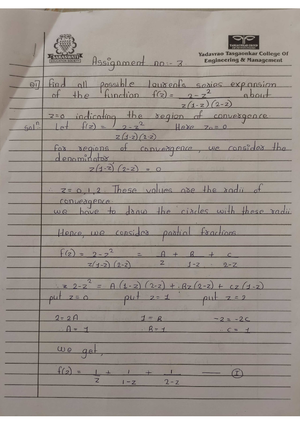 Yadavrao Tasgaonkar College Of
Engineering & Management
Assignment no:- 3
Q1) Find all possible laurent's series expansion
of the function f(z) = 2-z² / z(1-z)(2-z) about
z=0 indicating the region of convergence
Solⁿ Let f(z) = 2-z² / z(1-z)(2-z) Here z₀=0
For regions of convergence, we consider the
denominator,
z(1-z)(2-z) = 0
z=0,1,2. These values are the radii of
convergence
we have to draw the circles with these radii
Hence, we consider partial fractions
f(z) = 2-z² / z(1-z)(2-z) = A/z + B/1-z + C/2-z
2-z² = A(1-z)(2-z) + Bz(2-z) + Cz(1-z)
put z=0 put z=1 put z=2
2=2A 1=B -2=-2C
A=1 B=1 C=1
we get,
f(z) = 1/z + 1/1-z + 1/2-z